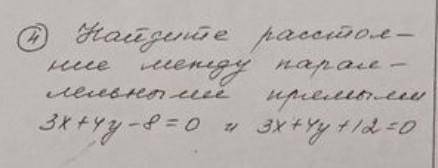 ④ Найдите расстоя-
ние между парал-
лельными прямыми
3x+4y-8=0 и 3x+4y+12=0